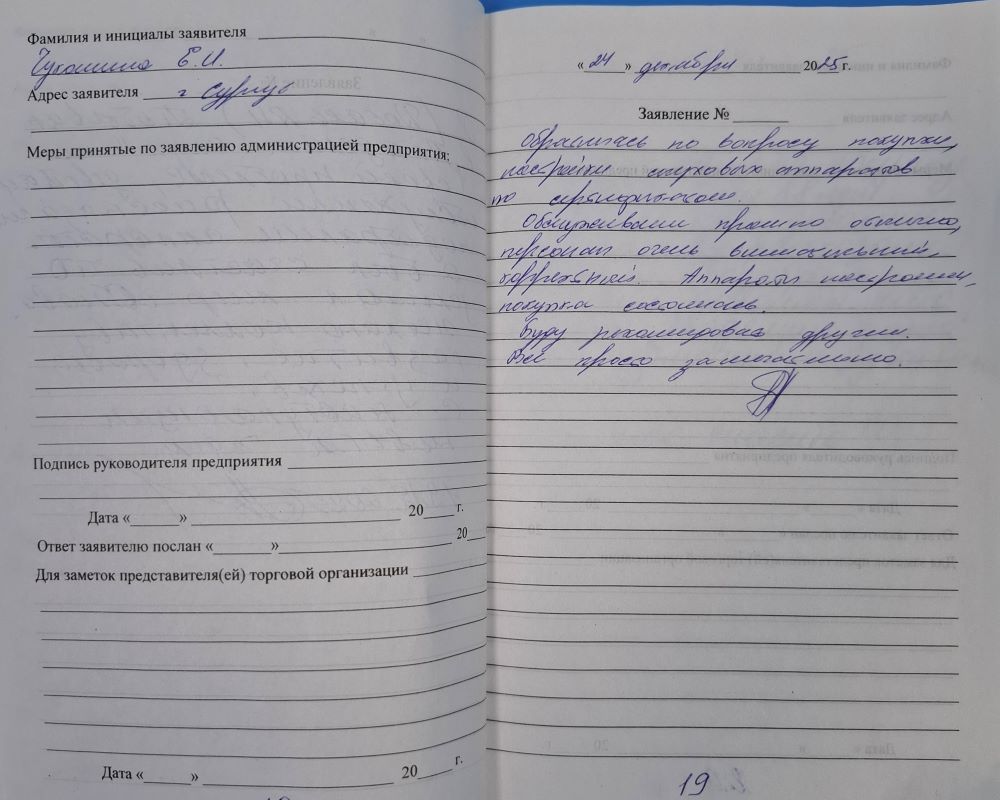 Фамилия и инициалы заявителя
Чукомина Е.И.
Адрес заявителя г Сургут
Меры принятые по заявлению администрацией предприятия:
Подпись руководителя предприятия
Дата «______» ______ 20____ г.
Ответ заявителю послан «______» ______ 20____
Для заметок представителя(ей) торговой организации
Дата «______» ______ 20____ г.
« 24 » декабря 2025 г.
Заявление № ______
Обратилась по вопросу покупки,
настройки слуховых аппаратов
по сертификатам.
Обслуживание прошло отлично,
персонал очень внимательный,
корректный. Аппараты настроены,
покупка состоялась.
Буду рекомендовать другим.
Все просто замечательно.
19